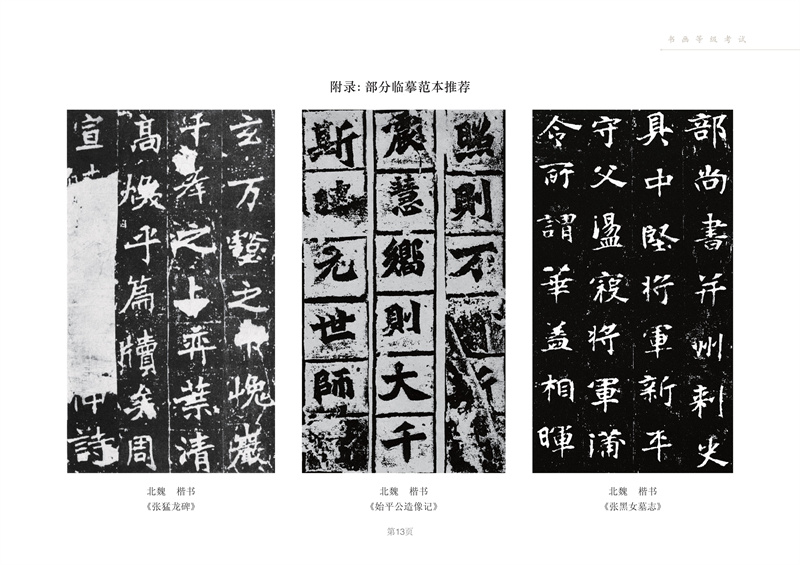 书画等级考试
附录：部分临摹范本推荐
玄万壑之中巍巖
千峯之上弈葉清
高煥乎篇牘矣周
宣時
仲詩
照則不
震慧嚮則大千
斯
元世師
部尚書并州刺史
具中堅將軍新平
守父盪寇將軍蒲
令所謂華蓋相暉
北魏 楷书
《张猛龙碑》
北魏 楷书
《始平公造像记》
北魏 楷书
《张黑女墓志》
第13页